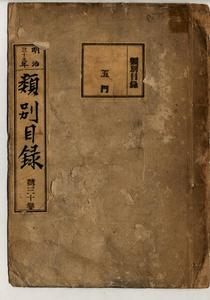 明治
三十年
類別目録
類別目録
五門